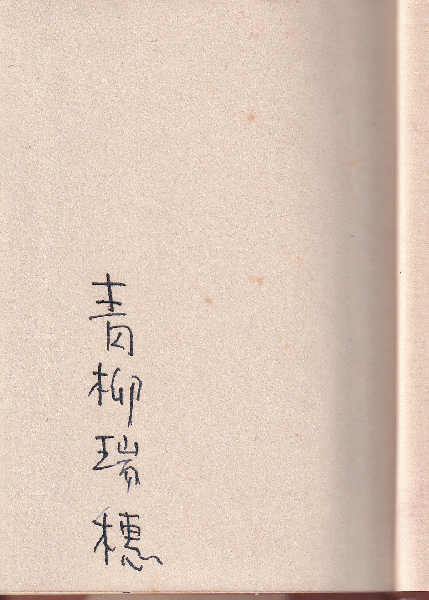 青柳瑞穂